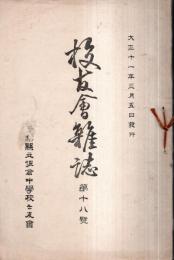 大正十一年三月五日發行
校友會雜誌
第十八號
縣立佐倉中學校々友會